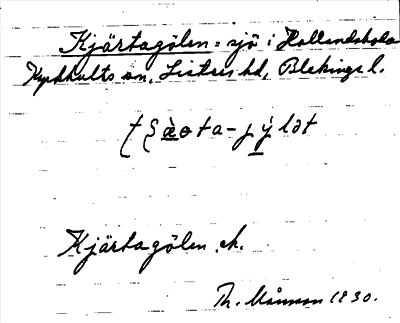 Kjärtagölen = sjö i Hollandsboda
Kyrkhults sn, Listers hd, Blekinge l.
Kjärtagölen. ek.
Th. Månsson 1930.